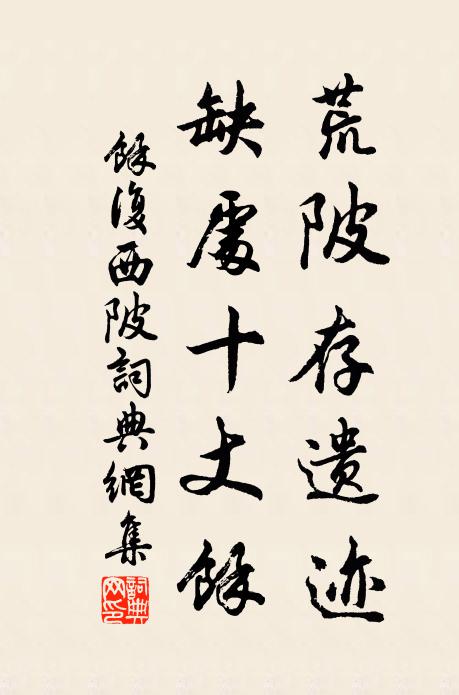 荒陂存遗迹
缺處十丈餘
餘復西陂詞典網集
詞典网印